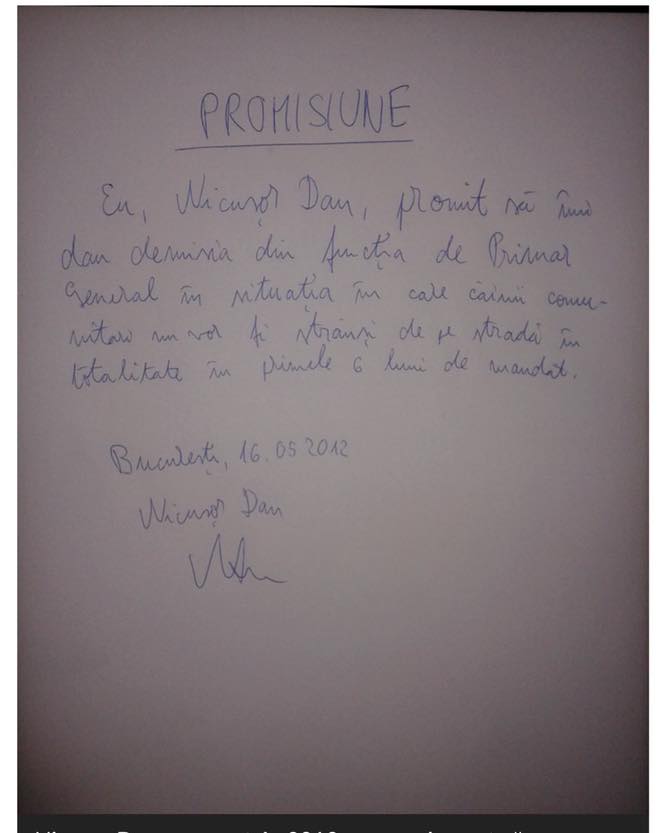 PROMISIUNE
Eu, Nicușor Dan, promit să îmi
dau demisia din funcția de Primar
General în situația în care câinii comu-
nitari nu vor fi strânși de pe stradă în
totalitate în primele 6 luni de mandat.
București, 16.05 2012
Nicușor Dan